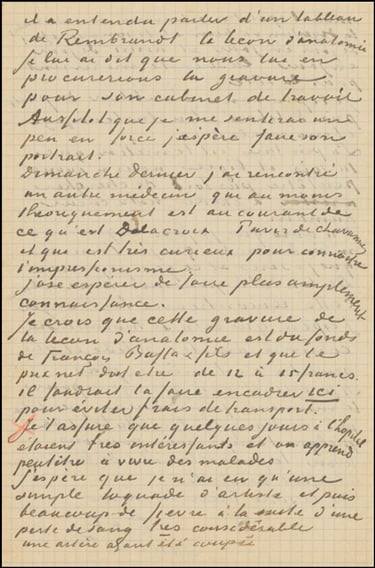 il a entendu parler d'un tableau
de Rembrandt la leçon d'anatomie
je lui ai dit que nous lui en
procurerions la gravure
pour son cabinet de travail
Aussitot que je me sentirai un
peu en force j'espère faire son
portrait.
Dimanche dernier j'ai rencontré
un autre médecin qui au moins
théoriquement est au courant de
ce qu'est Delacroix Puvis de chavannes
et qui est très curieux pour connaitre
l'impressionisme.
j'ose espérer de faire plus amplement
connaissance.
Je crois que cette gravure de
la leçon d'anatomie est du fonds
de François Buffa & fils et que le
prix net doit etre de 12 à 15 francs.
il faudrait la faire encadrer ici
pour éviter frais de transport.
Je t'assure que quelques jours à l'hopital
étaient très intéressants et on apprend
peutêtre à vivre des malades
J'espère que je n'ai eu qu'une
simple toquade d'artiste et puis
beaucoup de fievre à la suite d'une
perte de sang très considérable
une artère ayant été coupée